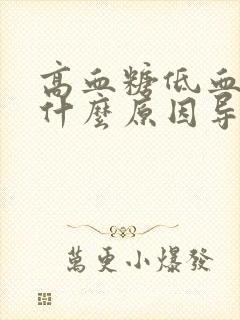 高血糖低血
什麼原因导
萬更小爆發